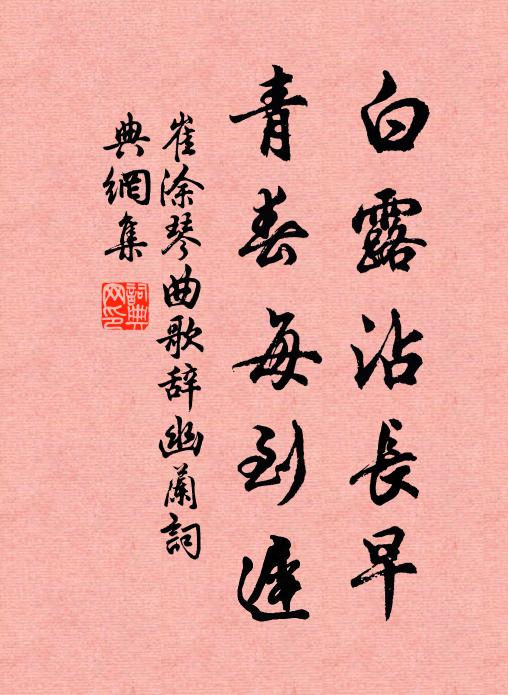 白露沾長早
青春每到遲
崔涂琴曲歌辞幽蘭詞
典網集
詞典
网印